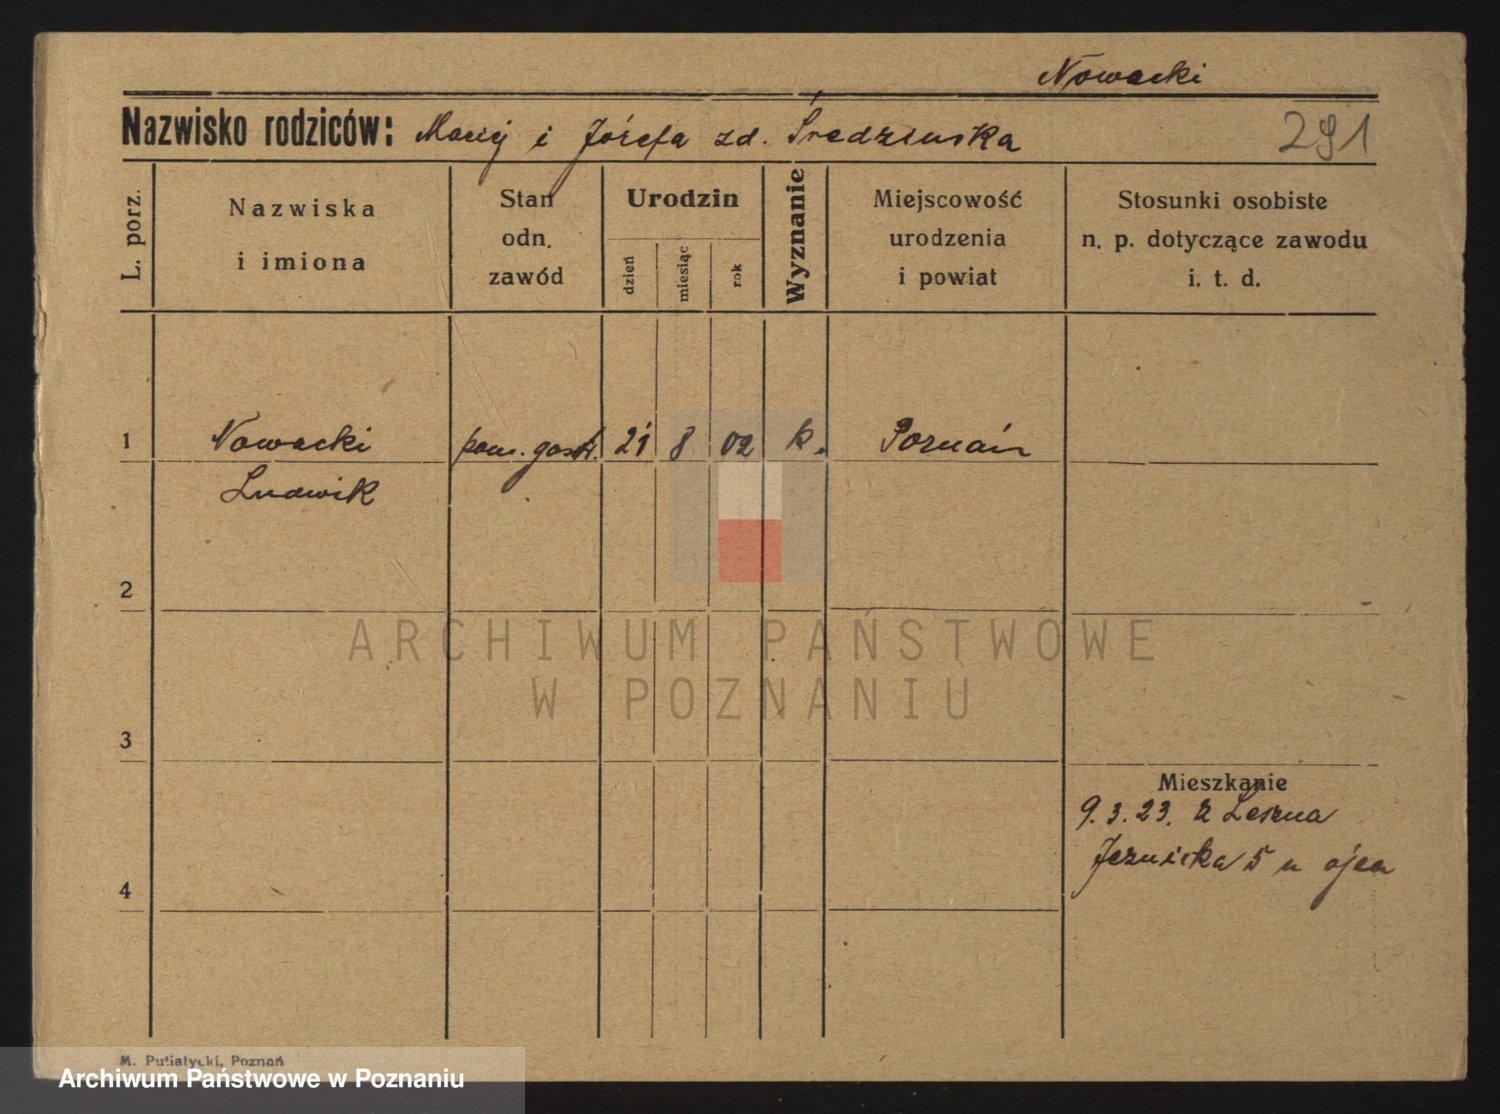 Nowacki
Nazwisko rodziców: Maciej i Józefa zd. Średzińska
291
L. porz.
Nazwiska
i imiona
Stan
odn.
zawód
Urodzin
dzień
miesiąc
rok
Wyznanie
Miejscowość
urodzenia
i powiat
Stosunki osobiste
n. p. dotyczące zawodu
i. t. d.
1 Nowacki pom. gosp. 21 8 02 k. Poznań
Ludwik
2
3
Mieszkanie
9.3.23. z Leszna
5 u ojca
4
M. Putiatycki, Poznań
ARCHIWUM PAŃSTWOWE
W POZNANIU
Archiwum Państwowe w Poznaniu